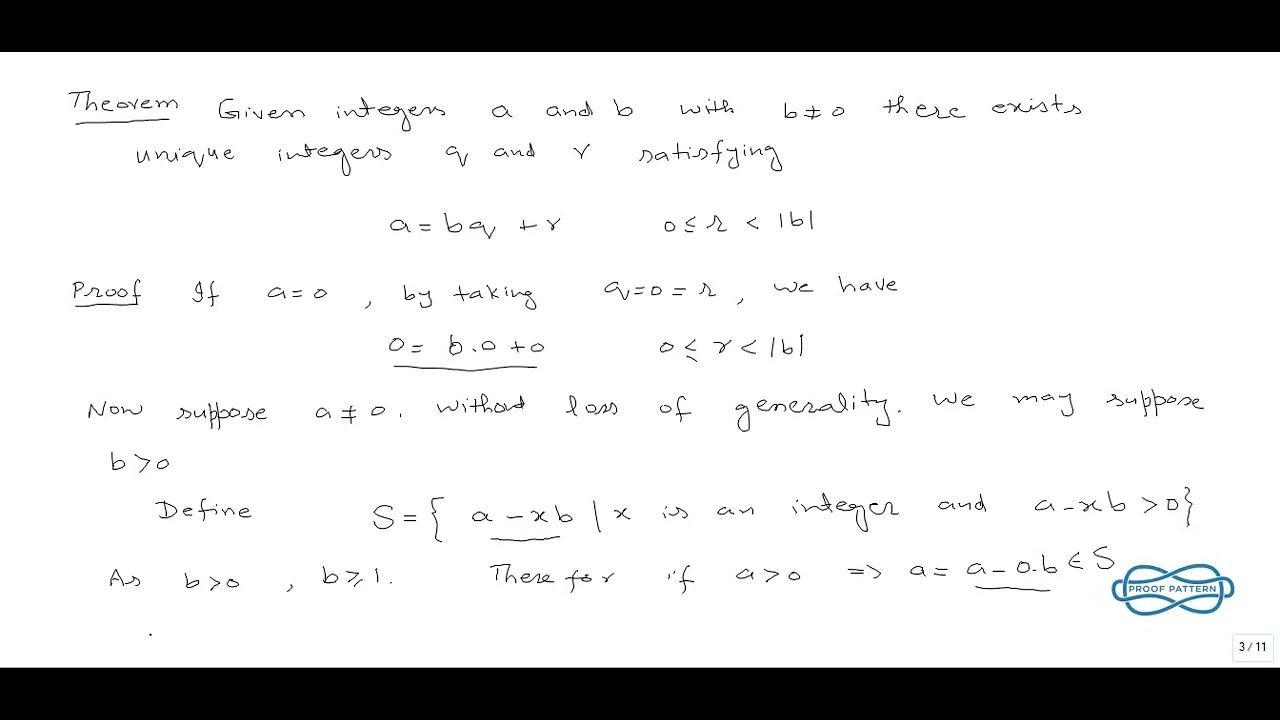 Theorem Given integers a and b with b ≠ 0 there exists
unique integers q and r satisfying
a = bq + r 0 ≤ r < |b|
Proof If a = 0 , by taking q = 0 = r , we have
0 = b.0 + 0 0 ≤ r < |b|
Now suppose a ≠ 0. Without loss of generality. We may suppose
b > 0
Define S = { a - xb | x is an integer and a - xb > 0}
As b > 0 , b ⩾ 1. Therefor if a > 0 => a = a - 0.b ∈ S
PROOF PATTERN
3 / 11